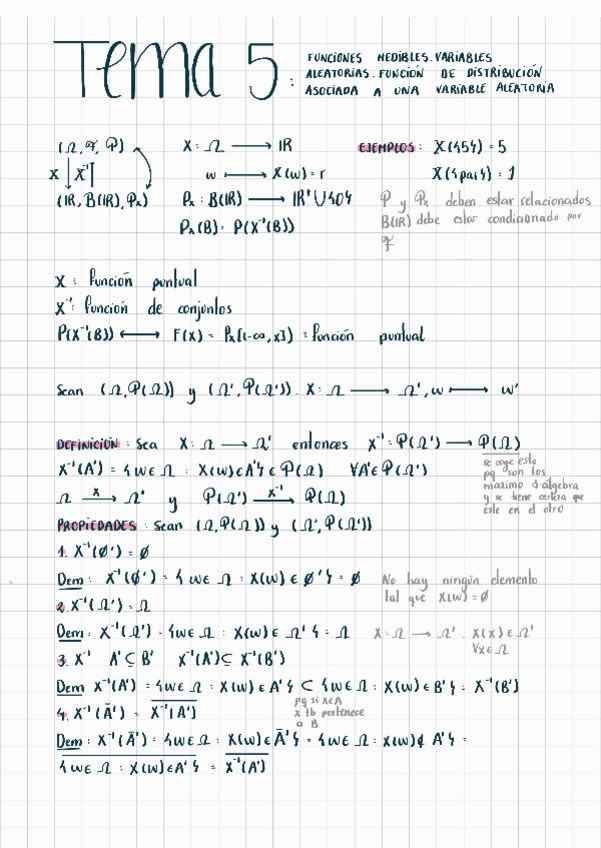 Tema 5: FUNCIONES MEDIBLES. VARIABLES
ALEATORIAS. FUNCIÓN DE DISTRIBUCIÓN
ASOCIADA A UNA VARIABLE ALEATORIA
(Ω, 𝓕, P) X: Ω ⟶ IR EJEMPLOS: X({5}) = 5
X ↓ X⁻¹↑ w ⟼ X(w) = r X({par}) = 1
(IR, B(IR), Pₓ) Pₓ: B(IR) ⟶ IR⁺∪{0} P y Pₓ deben estar relacionados
Pₓ(B) = P(X⁻¹(B)) B(IR) debe estar condicionado por
𝓕
X: Función puntual
X⁻¹: Función de conjuntos
P(X⁻¹(B)) ⟷ F(x) = Pₓ[(-∞, x]) = Función puntual
Sean (Ω, P(Ω)) y (Ω', P(Ω')). X: Ω ⟶ Ω', w ⟼ w'
DEFINICIÓN: Sea X: Ω ⟶ Ω' entonces X⁻¹: P(Ω') ⟶ P(Ω)
X⁻¹(A') = {w∈ Ω : X(w)∈A'} ∈ P(Ω) ∀A'∈P(Ω')
Ω —X→ Ω' y P(Ω') —X⁻¹→ P(Ω)
se coge esto
pq son los
máximo σ-álgebra
y se tiene certeza que
este en el otro
PROPIEDADES: Sean (Ω, P(Ω)) y (Ω', P(Ω'))
1. X⁻¹(Ø') = Ø
Dem: X⁻¹(Ø') = {w∈ Ω : X(w) ∈ Ø'} = Ø No hay ningún elemento
tal que X(w) = Ø
2. X⁻¹(Ω') = Ω
Dem: X⁻¹(Ω') = {w∈ Ω : X(w) ∈ Ω'} = Ω X: Ω ⟶ Ω'. X(x) ∈ Ω'
∀x∈Ω
3. X⁻¹ A' ⊆ B' X⁻¹(A') ⊆ X⁻¹(B')
Dem X⁻¹(A') = {w∈ Ω : X(w) ∈ A'} ⊂ {w∈ Ω : X(w) ∈ B'} = X⁻¹(B')
pq si x∈A
x tb pertenece
a B
4. X⁻¹(Ā') = \overline{X⁻¹(A')}
Dem: X⁻¹(Ā') = {w∈ Ω : X(w)∈ Ā'} = {w∈ Ω : X(w)∉ A'} =
\overline{{w∈ Ω : X(w)∈A'}} = \overline{X⁻¹(A')}